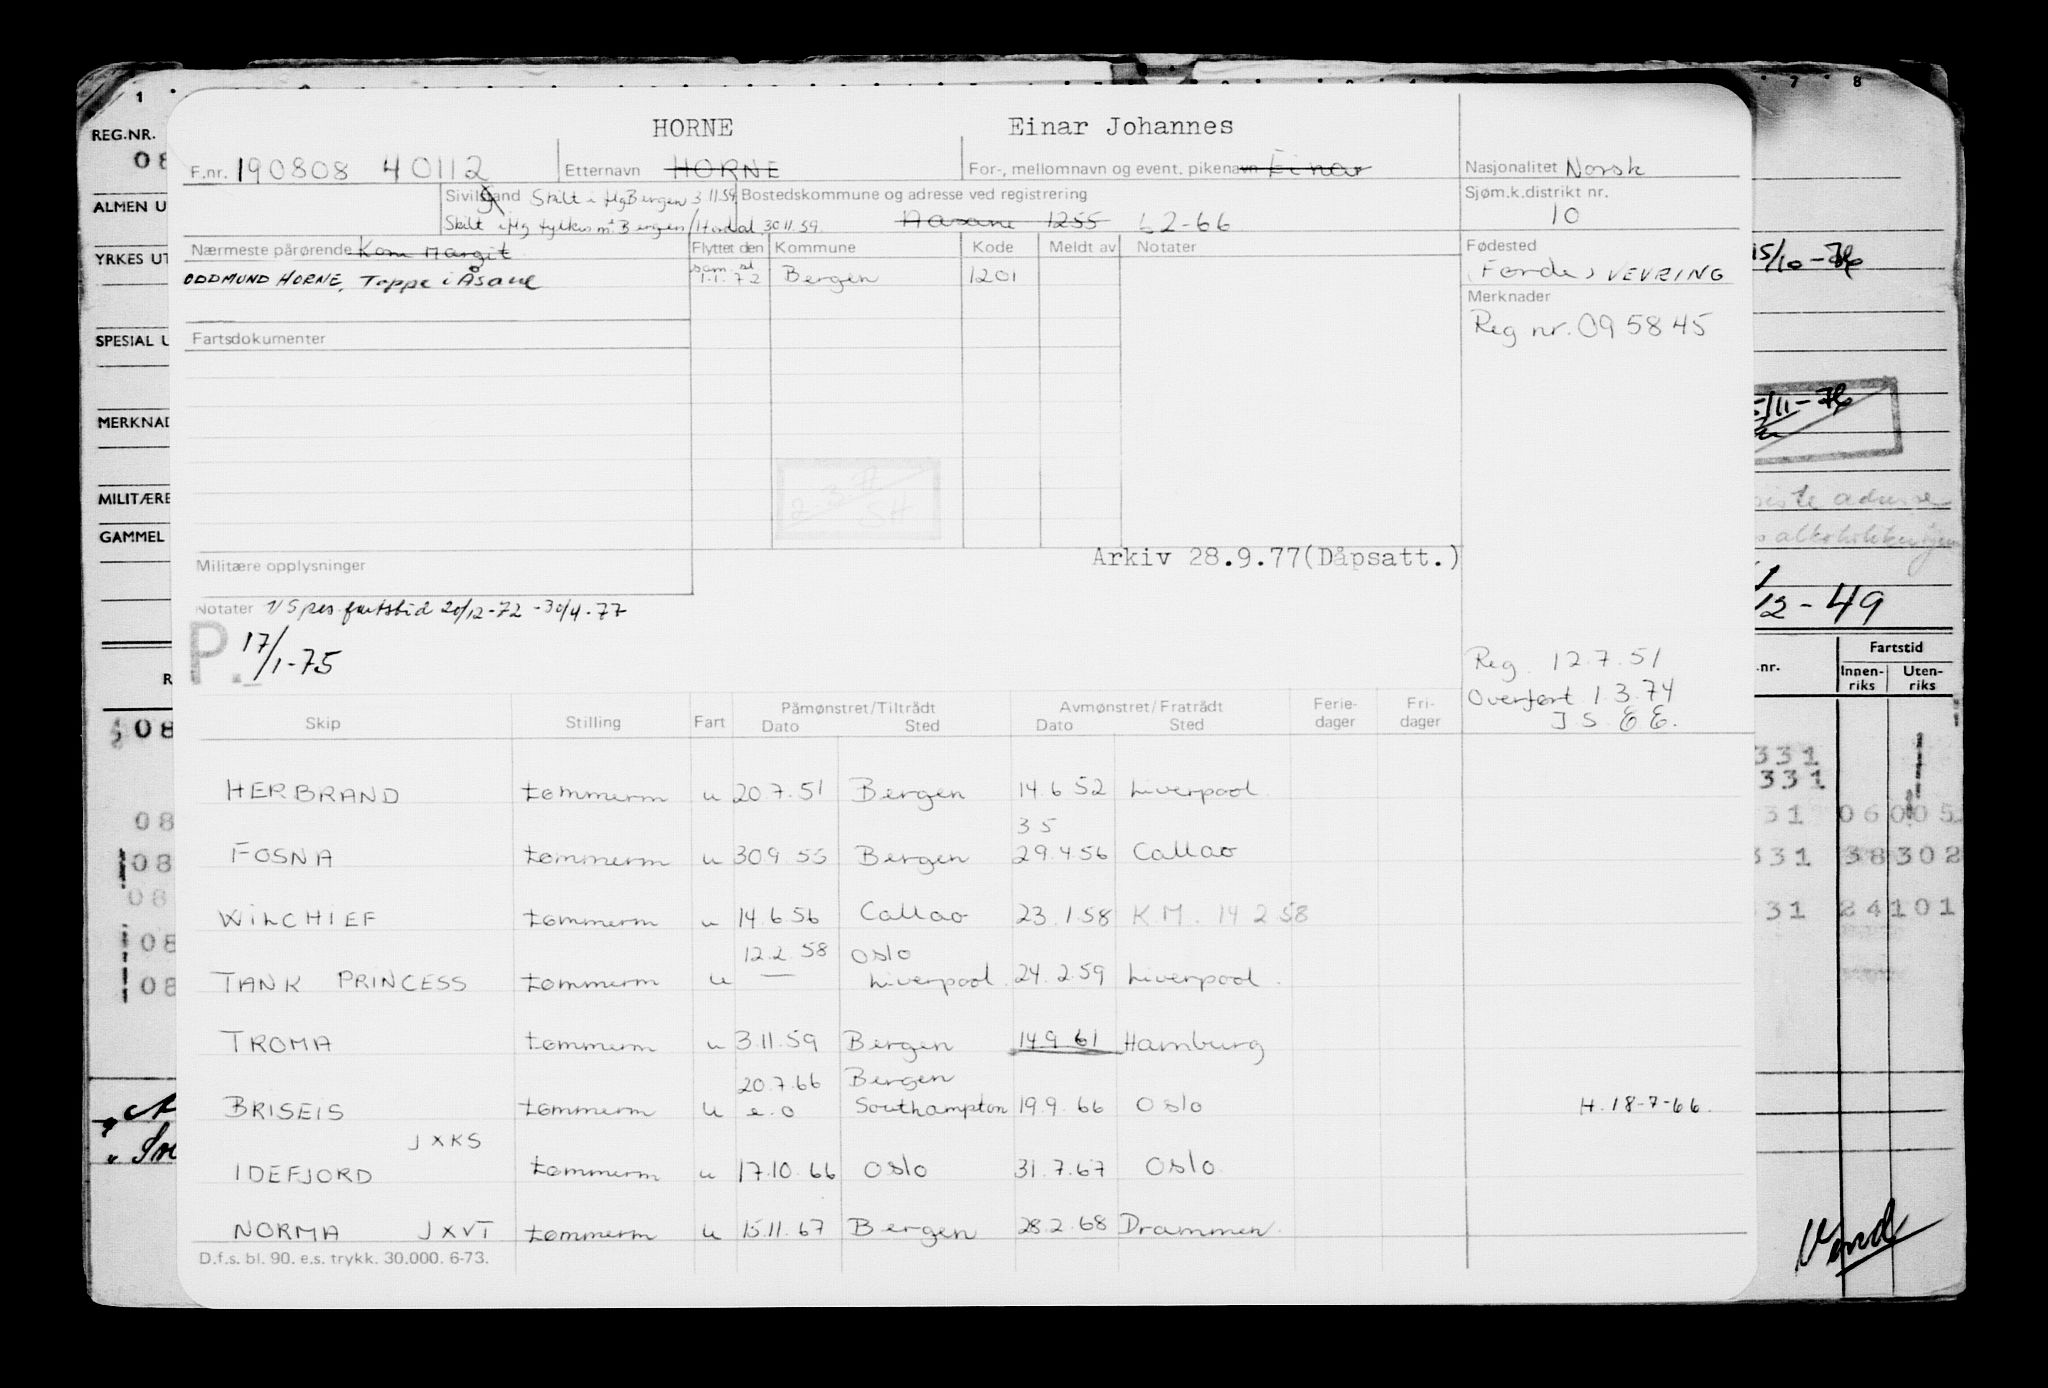 1 7 8
REG.NR.
08
ALMEN U
YRKES UT
SPESIAL U
MERKNAD
MILITÆRE
GAMMEL
HORNE Einar Johannes
F.nr. 190808 40112 Etternavn HORNE For-, mellomnavn og event. pikenavn Einar Nasjonalitet Norsk
Sivilstand Skilt i flg Bergen 3.11.59 Bostedskommune og adresse ved registrering Sjøm.k.distrikt nr.
Skilt iflg fylkesm i Bergen/Hordal 30.11.59. Aasane 1255 62-66 10
Nærmeste pårørende Kone Margit Flyttet den Kommune Kode Meldt av Notater Fødested
ODDMUND HORNE, Toppe i Åsane 1.1.72 Bergen 1201 (Førde) VEVRING
15/10-76
Merknader
Reg nr. 095845
Fartsdokumenter
5/11-76
2-3-76
SH
Arkiv 28.9.77(Dåpsatt.)
siste adresse
alkoholikerhjem
Militære opplysninger
Notater V/S pes. fartstid 20/12-72 -30/4-77
12-49
P. 17/1-75
Reg. 12.7.51
Overført 1.3.74
J S. E E.
.nr. Fartstid
Innen-riks Uten-riks
Skip Stilling Fart Påmønstret/Tiltrådt Dato Sted Avmønstret/Fratrådt Dato Sted Ferie-dager Fri-dager
HERBRAND tømmerm u 20.7.51 Bergen 14.6 52 Liverpool
3 5
FOSNA tømmerm u 30.9.55 Bergen 29.4.56 Callao
WILCHIEF tømmerm u 14.6.56 Callao 23.1.58 K.M. 14 2 58
12.2.58 Oslo
TANK PRINCESS tømmerm u — Liverpool. 24.2.59 Liverpool.
TROMA tømmerm u 3.11.59 Bergen 14.9 61 Hamburg
20.7.66 Bergen
BRISEIS tømmerm u e.o Southampton 19.9.66 Oslo H. 18-7-66.
JXKS
IDEFJORD tømmerm u 17.10.66 Oslo 31.7.67 Oslo
NORMA JXVT tømmerm u 15.11.67 Bergen 28.2.68 Drammen.
D.f.s. bl. 90. e.s. trykk. 30.000. 6-73.
08
08
08
08
08
08
331
331
31 06 005
331 38 302
31 24 101
Vend